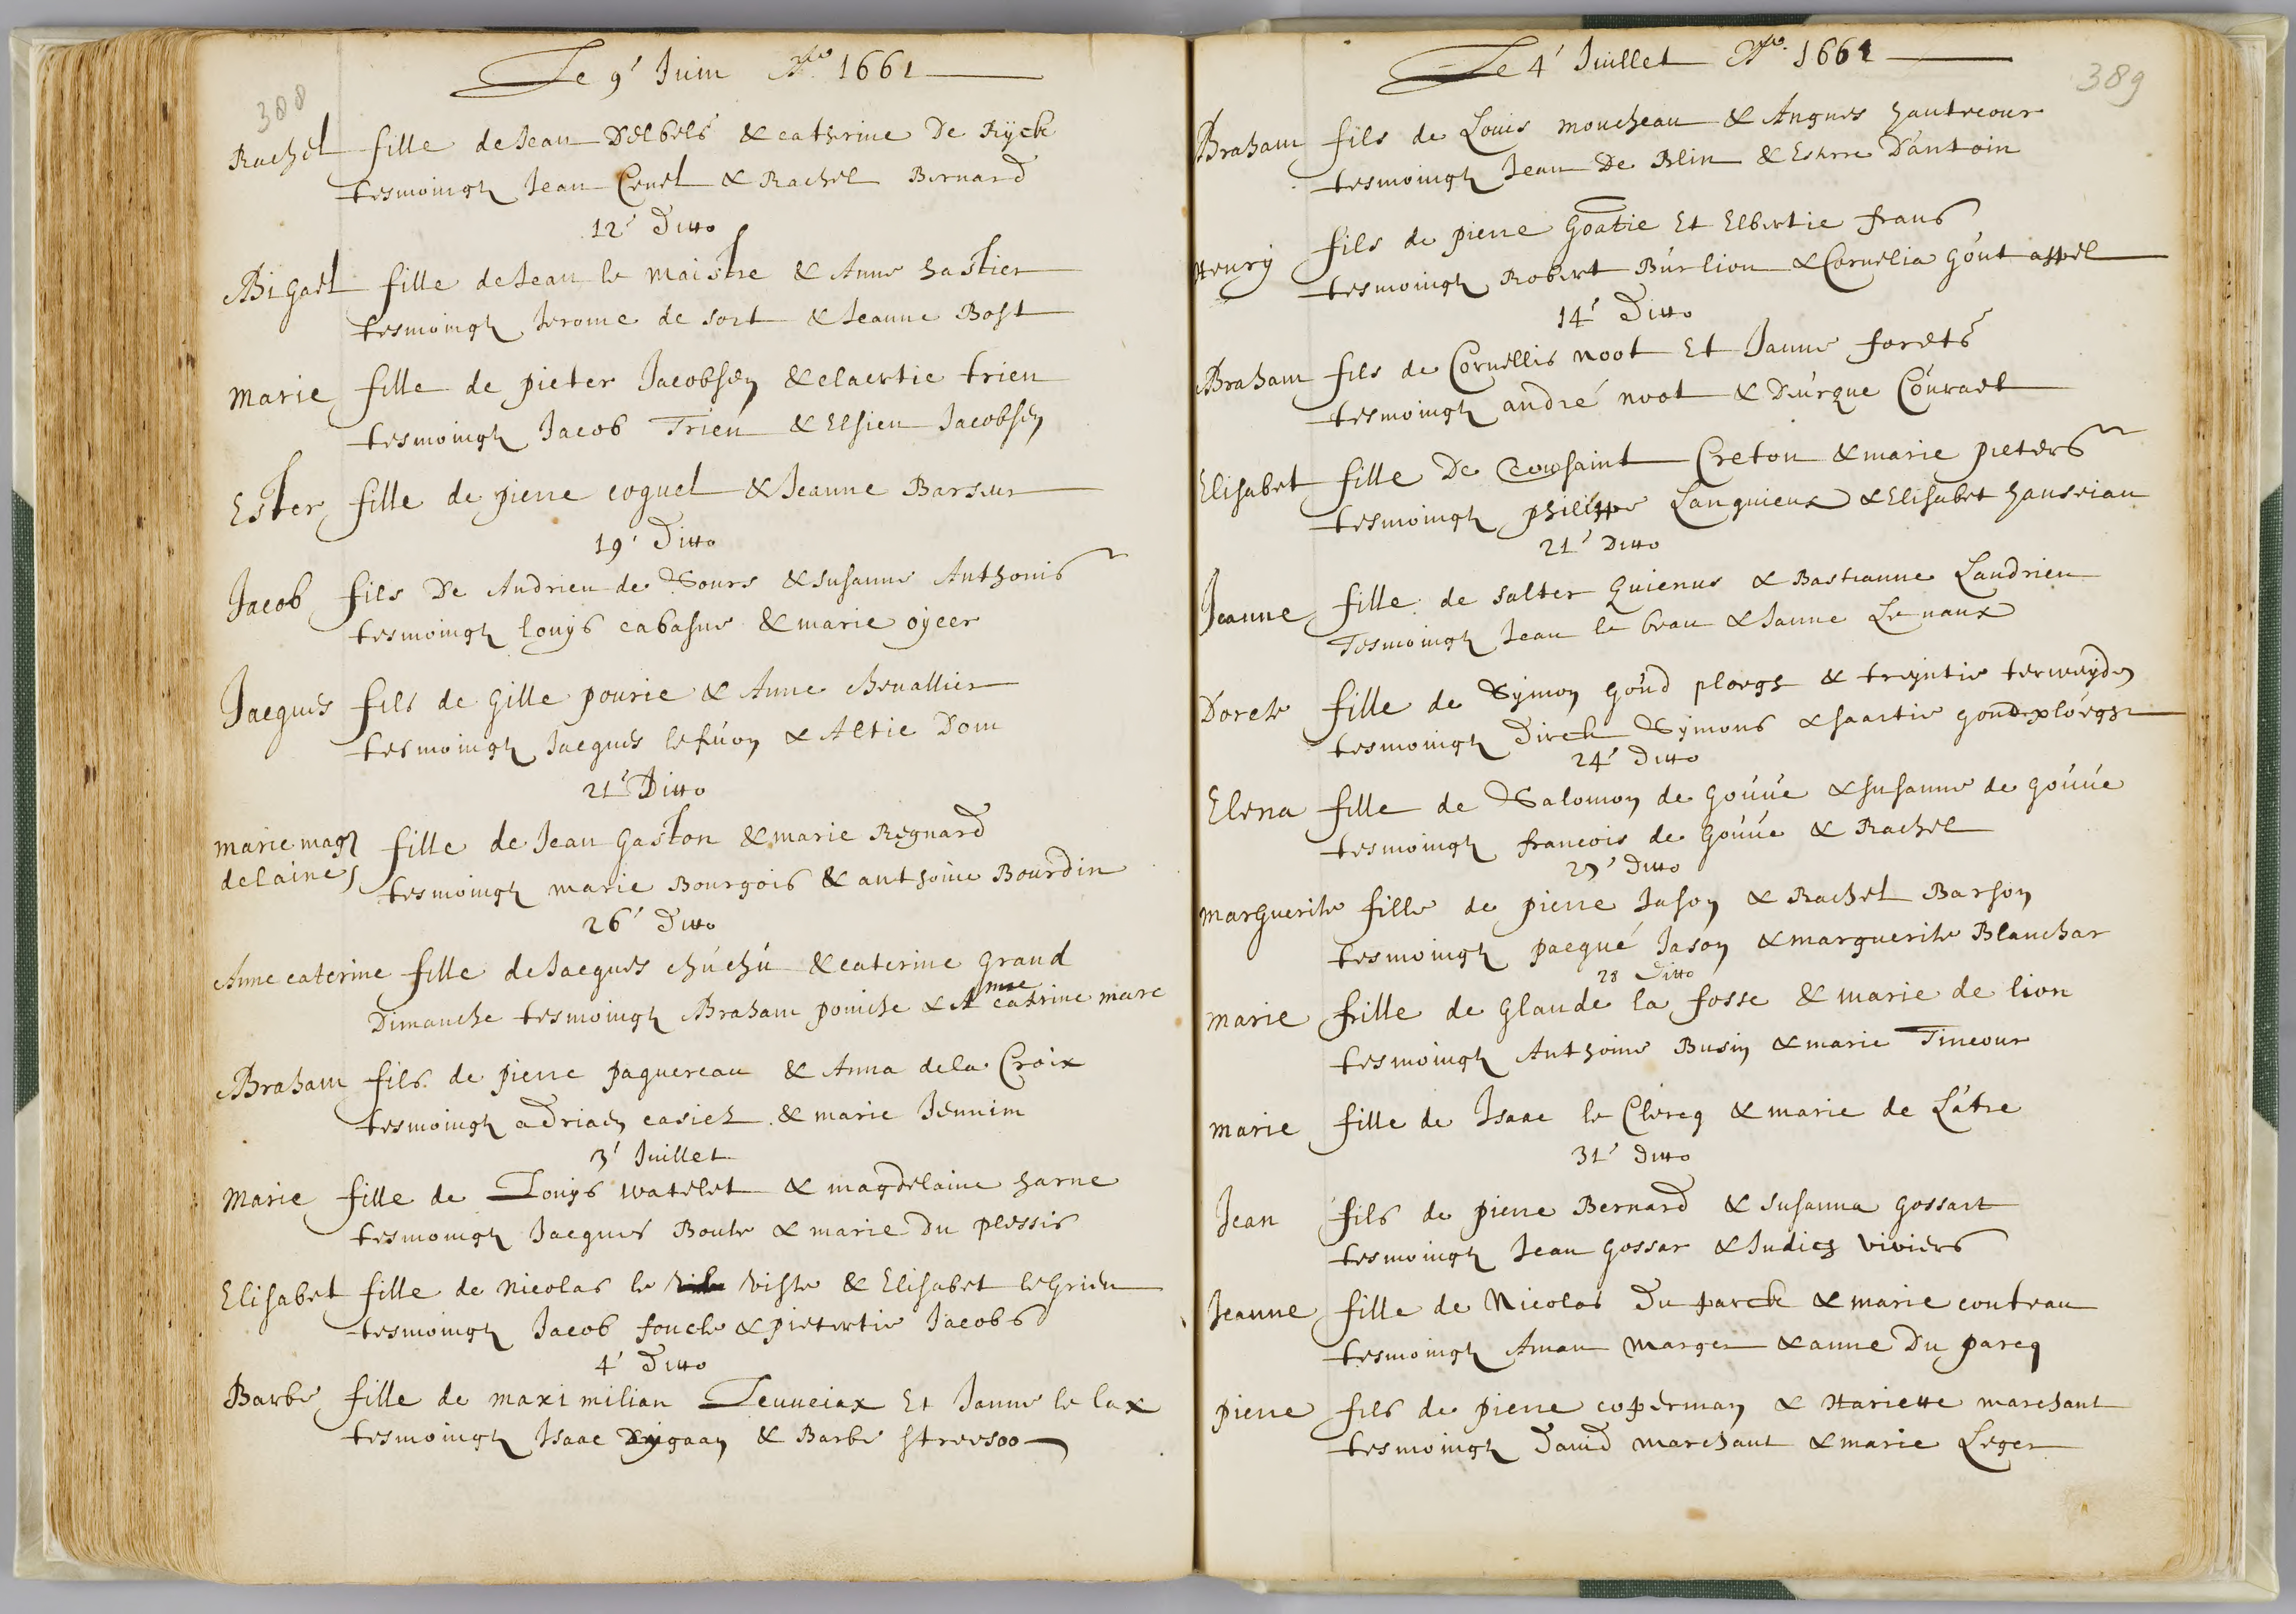 388
Le 9' Juin A.º 1661
Rachel fille de Jean Delbels & catherine De Rÿck
tesmoingz Jean Cruel & Rachel Bernard
12' Ditto
ABigael fille de Jean le Maistre & Anne hastier
tesmoingz Jerome de sort & Jeanne Bost
Marie fille de pieter Jacobsen & claertie trien
tesmoingz Jacob Trien & Elsien Jacobsen
Ester fille de pierre coquel & Jeanne Barseur
19' Ditto
Jacob fils De Andrieu de Sours & susanne Anthonis
tesmoingz louÿs cabasne & marie oÿeer
Jacques fils de Gille pourie & Anne Chevallier
tesmoingz Jacques lefuon & Altie Dom
21' Ditto
marie mag
delaine fille de Jean Gaston & marie Regnard
tesmoingz marie Bourgois & anthoine Bourdin
26' Ditto
Anne caterine fille de Jacques chúchú & caterine grand
Dimanche tesmoingz Abraham poniche & Anne catrine marc
Abraham fils de pierre paquereau & Anna de la Croix
tesmoingz adriaen casier & marie Jennim
3' Juillet
Marie fille de Louÿs watelet & magdelaine harne
tesmoingz Jacques Boule & marie Du plessis
Elisabet fille de Nicolas le viste & Elisabet le Grieu
tesmoingz Jacob foucle & pietertie Jacobs
4' Ditto
Barbe fille de maximilian Leuveiax Et Janne le lax
tesmoingz Isaac Dÿgaan & Barbe streesoo
389
Le 4' Juillet A.º 1661
Abraham fils de Louis moucheau & Angnes hautecour
tesmoingz Jean De Blin & Esterre D'antoin
Henrÿ fils de pierre Goatie Et Elbertie frans
tesmoingz Robert Búrlion & Cornelia Gout appel
14' Ditto
Abraham fils de Cornellis noot Et Janne forets
tesmoingz andré noot & Dúrque Coúrael
Elisabet fille De Tousaint Creton & marie pieters
tesmoingz philippe Languieux & Elisabet hauseian
21' Ditto
Jeanne fille de salter Quienus & Bastianne Landrieu
Tesmoingz Jean le beau & Janne Le naux
Dorete fille de Sÿmon goúd ploegh & treÿntie terweÿden
tesmoingz Dirck Sÿmons & haartie goudploegh
24' Ditto
Elena fille de Salomon de Goúúe & susanne de goúúe
tesmoingz francois de Goúúe & Rachel
27' Ditto
marguerite fille de pierre Jason & Rachel Barson
tesmoingz pacqué Jason & marguerite Blanchar
28 Ditto
marie frille de Glaude la fosse & marie de lion
tesmoingz Anthoine Businn & marie Tincour
marie fille de Isaac le Clercq & marie de Látre
31' Ditto
Jean fils de pierre Bernard & susanna gossart
tesmoingz Jean gossar & Judich viviers
Jeanne fille de Nicolas Du parck & marie coutrau
tesmoingz Aman Marger & anne Du parcq
pierre fils de pierre coperman & Hariette marchant
tesmoingz David marchant & marie Leger